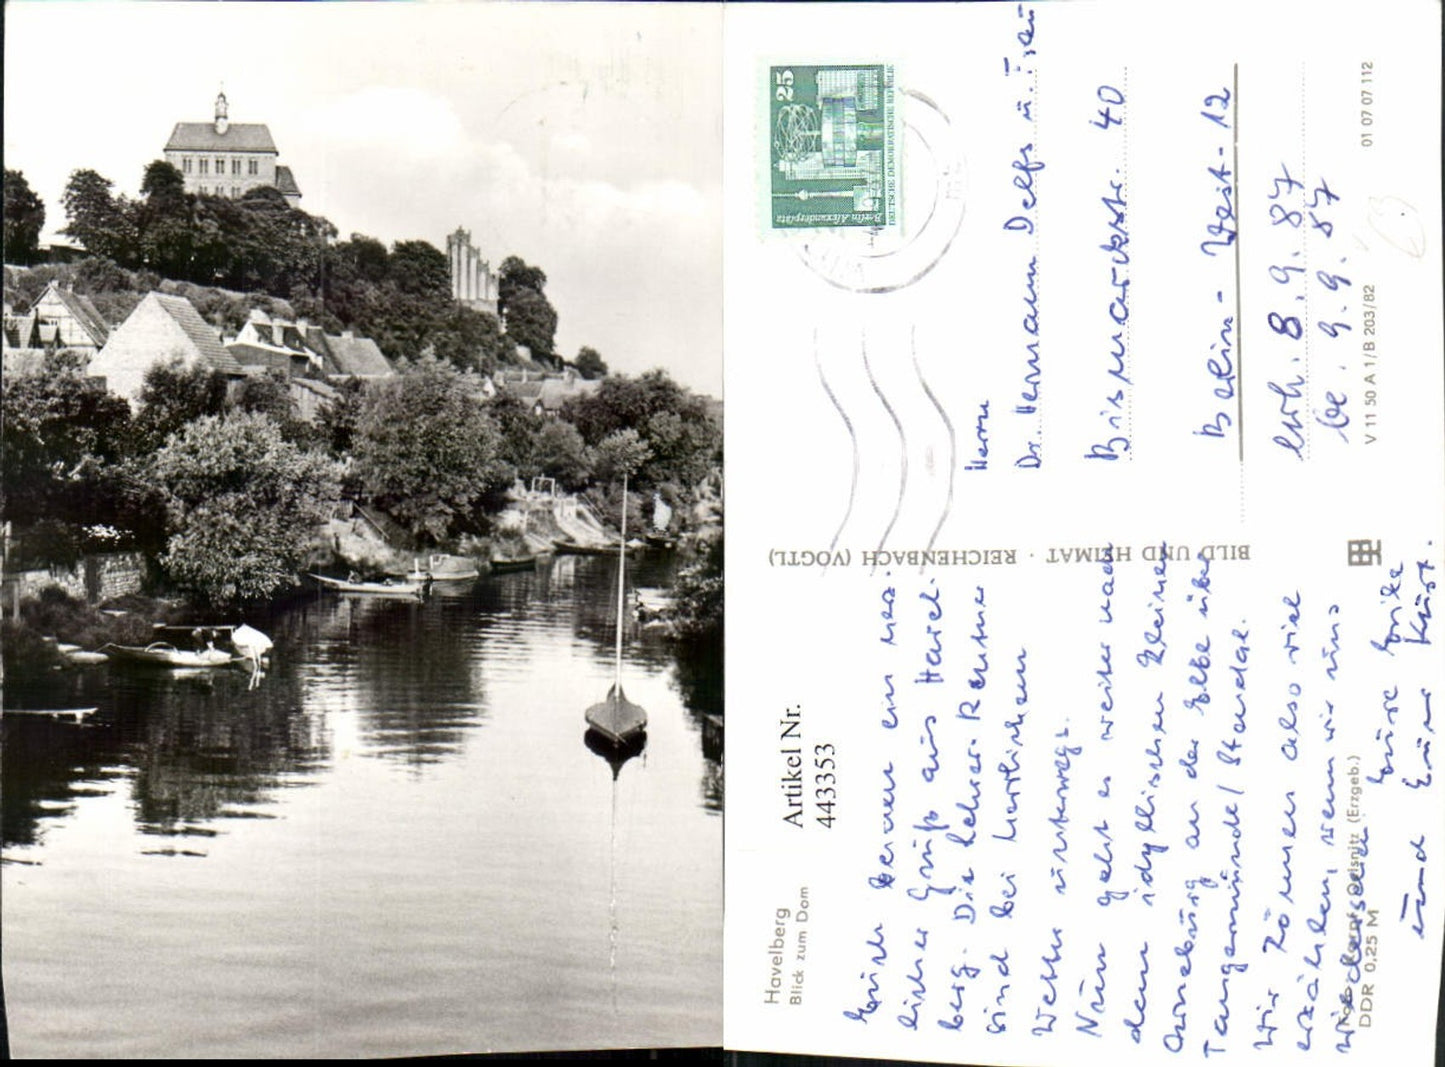 Havelberg
Blick zum Dom
Artikel Nr.
443353
Euch beiden ein herz-
licher Gruß aus Havel-
berg. Die Lehrer-Rentner
sind bei herrlichem
Wetter unterwegs.
Nun geht es weiter nach
dem idyllischen kleinen
Arneburg an der Elbe über
Tangermünde/Stendal.
Wir können also viel
erzählen, wenn wir uns
wiedersehen. Eure Erika
und Euer Kurt.
(Erzgeb.)
DDR 0,25 M
BILD UND HEIMAT · REICHENBACH (VOGTL)
25
Berlin Alexanderplatz
DEUTSCHE DEMOKRATISCHE REPUBLIK
Herrn
Dr. Hermann Delfs u. Frau
Bismarckstr. 40
Berlin-West-12
erh. 8.9.87
be. 9.9.87
V 11 50 A 1/B 203/82
01 07 07 112